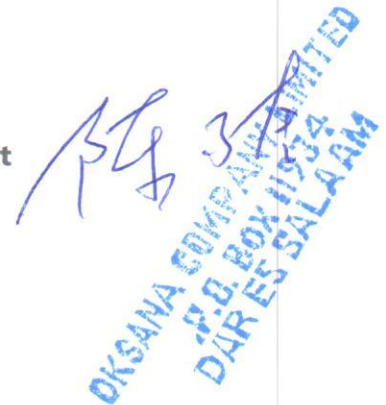 t
陈
OKSANA COMPANY LIMITED
P.O. BOX 11934
DAR ES SALAAM